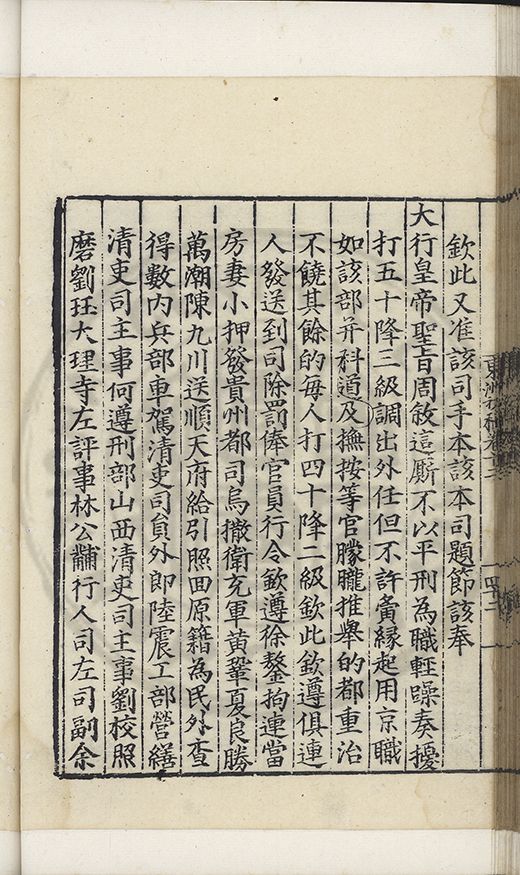 欽此又准該司手本該本司題節該奉
大行皇帝聖旨周敘這廝不以平刑為職輕躁奏擾
打五十降三級調出外任但不許夤縁起用京職
如該部并科道及撫按等官朦朧推舉的都重治
不饒其餘的每人打四十降二級欽此欽遵俱連
人發送到司除罰俸官員行令欽遵徐鏊拘連當
房妻小押發貴州都司烏撒衛充軍黃鞏夏良勝
萬潮陳九川送順天府給引照回原籍為民外查
得數内兵部車駕清吏司員外郎陸震工部營繕
清吏司主事何遵刑部山西清吏司主事劉校照
磨劉珏大理寺左評事林公黼行人司左司副余